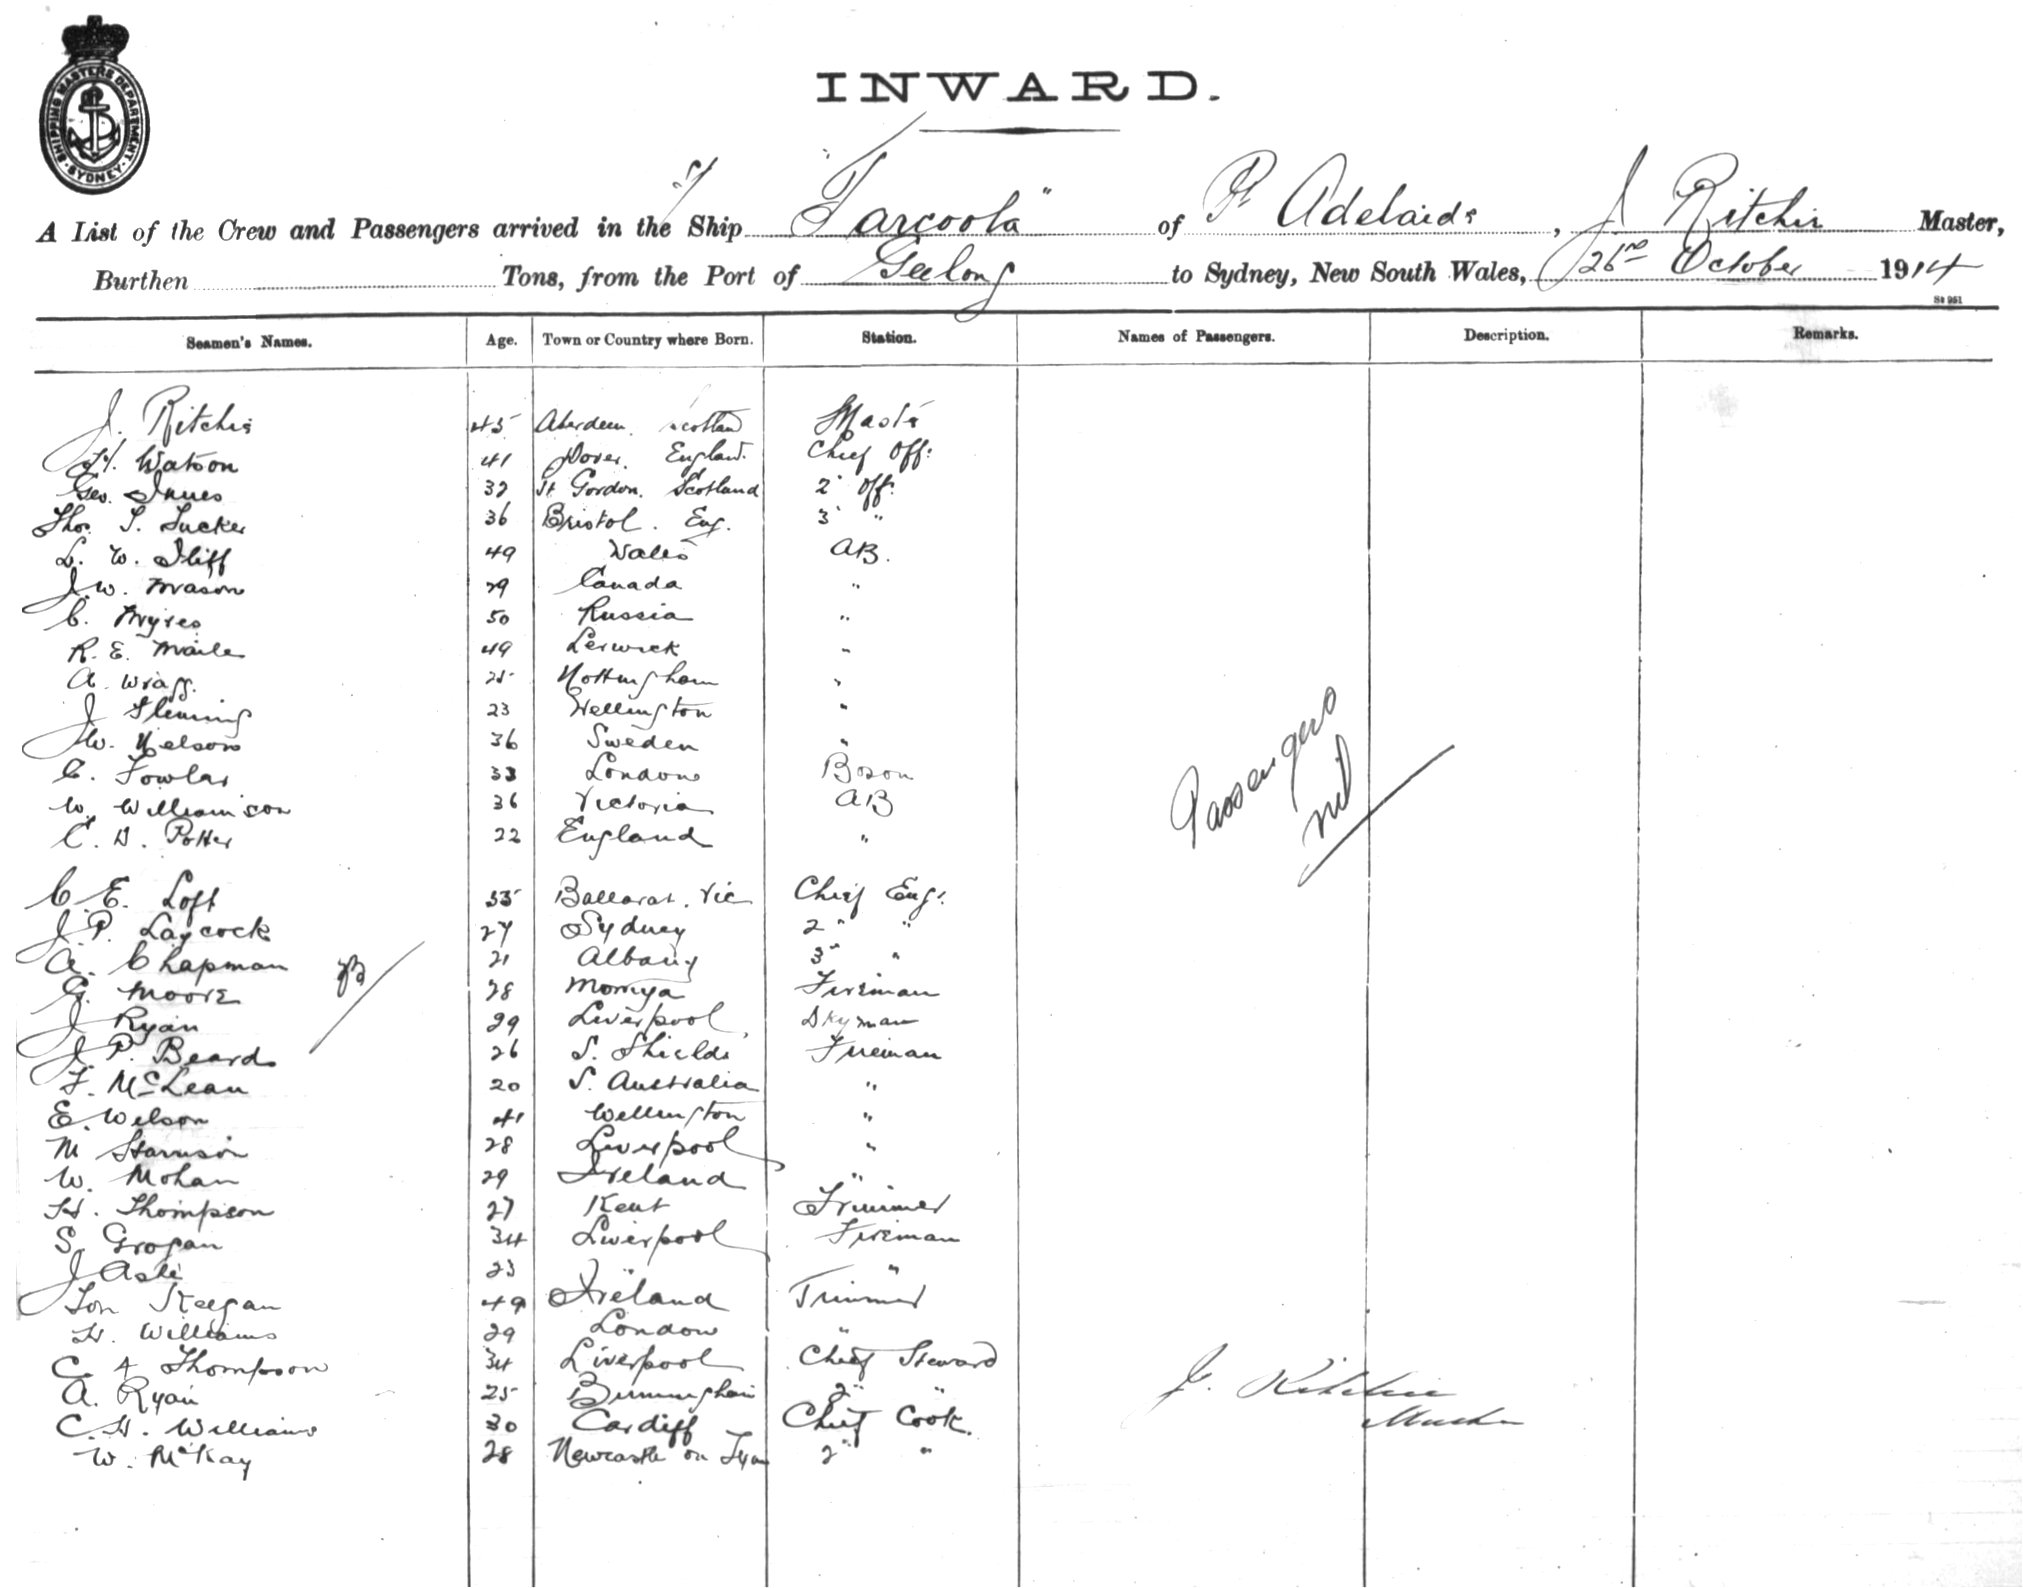 SHIPPING MASTERS DEPARTMENT. SYDNEY
INWARD.
A List of the Crew and Passengers arrived in the Ship "Tarcoola" of Pt Adelaide, J Ritchie Master,
Burthen Tons, from the Port of Geelong to Sydney, New South Wales, 26 October 1914
St 951
Seamen's Names. Age. Town or Country where Born. Station. Names of Passengers. Description. Remarks.
J. Ritchie 45 Aberdeen. Scotland Master
H. Watson 41 Dover. England. Chief Off:
Geo. Innes 32 Pt Gordon. Scotland 2" Off:
Thos. S. Tucker 36 Bristol. Eng. 3" "
L. W. Iliff 49 Wales AB.
J. W. Mason 29 Canada "
C. Myres 50 Russia "
R. E. Maile 49 Lerwick "
A. Wragg. 25 Nottingham "
J Fleming 23 Wellington "
W. Nelson 36 Sweden "
C. Fowlar 33 London Boson
W. Williamson 36 Victoria AB
C. D. Potter 22 England "
Passengers
nil
C. E. Loft 35 Ballarat. Vic Chief Eng:
J. P. Laycock 27 Sydney 2" "
A. Chapman 21 Albany 3" "
G. Moore 28 Moruya Fireman
J Ryan 29 Liverpool Dkyman
J. P. Beard 26 S. Shields Fireman
F. McLean 20 S. Australia "
E. Wilson 41 Wellington "
M 28 Liverpool "
W. Mohan 29 Ireland "
H. Thompson 27 Kent Trimmer
S. Grogan 34 Liverpool Fireman
J 23 " "
Keegan 49 Ireland Trimmer
H. Williams 29 London "
C. A Thompson 34 Liverpool Chief Steward
A. Ryan 25 Birmingham 2" "
C. H. Williams 30 Cardiff Chief Cook.
W. McKay 28 Newcastle on Tyne 2" "
J. Ritchie
Master